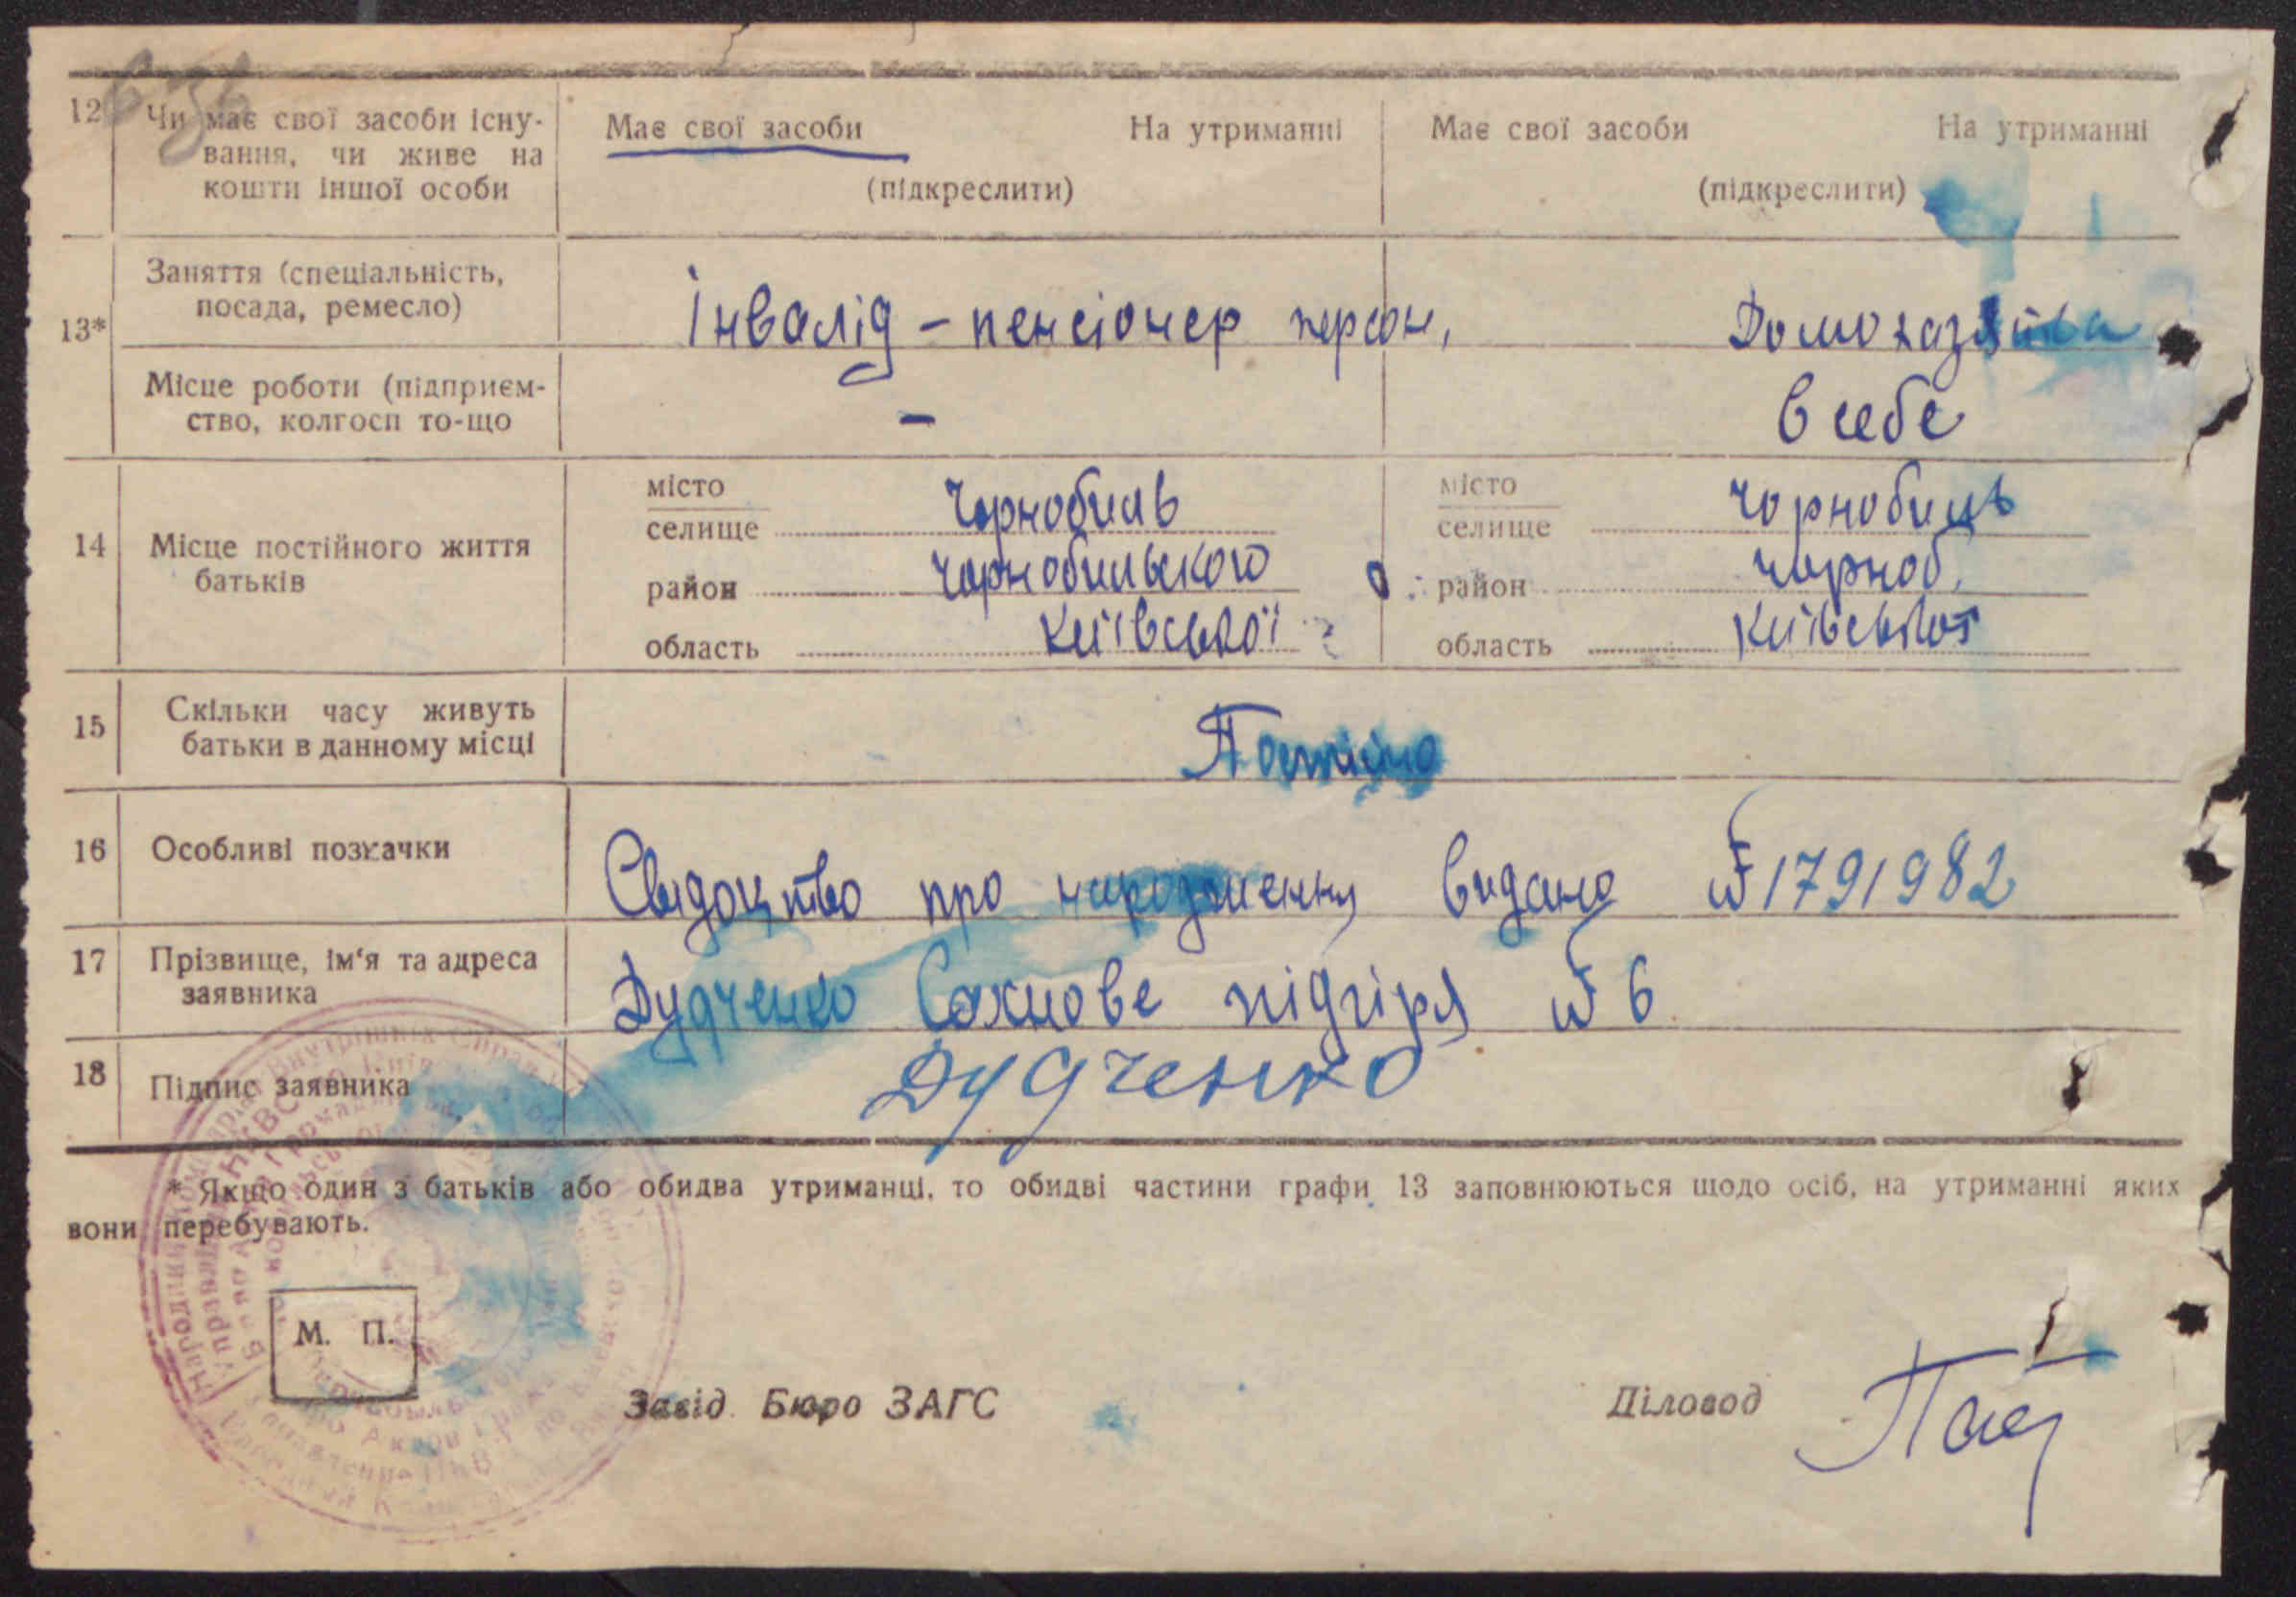 12 Чи має свої засоби існу-
вання, чи живе на
кошти іншої особи
Має свої засоби На утриманні Має свої засоби На утриманні
(підкреслити) (підкреслити)
13*
Заняття (спеціальність,
посада, ремесло)
Інвалід - пенсіонер персон, Домохазяйка
Місце роботи (підприєм-
ство, колгосп то-що
- в себе
14 Місце постійного життя
батьків
місто
селище Чорнобиль
район Чорнобильського
область Київської
місто
селище Чорнобиль
район Чорноб.
область Київської
15 Скільки часу живуть
батьки в данному місці
Постійно
16 Особливі позначки
Свидоцтво про народження видано № 1791982
17 Прізвище, ім'я та адреса
заявника
Дудченко підгіря № 6
18 Підпис заявника
Дудченко
* Якщо один з батьків або обидва утриманці, то обидві частини графи 13 заповнюються щодо осіб, на утриманні яких
вони перебувають.
М. П.
Завід. Бюро ЗАГС Діловод